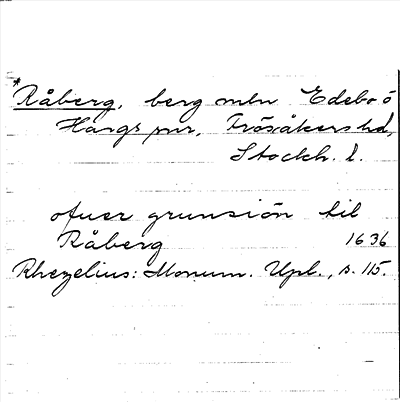 *Råberg, berg mln Edebo ö
Hargs snr, Frösåkers hd,
Stockh. l.
ofuer grunsiön til
Råberg 1636
Rhezelius: Monum. Upl., s. 115.